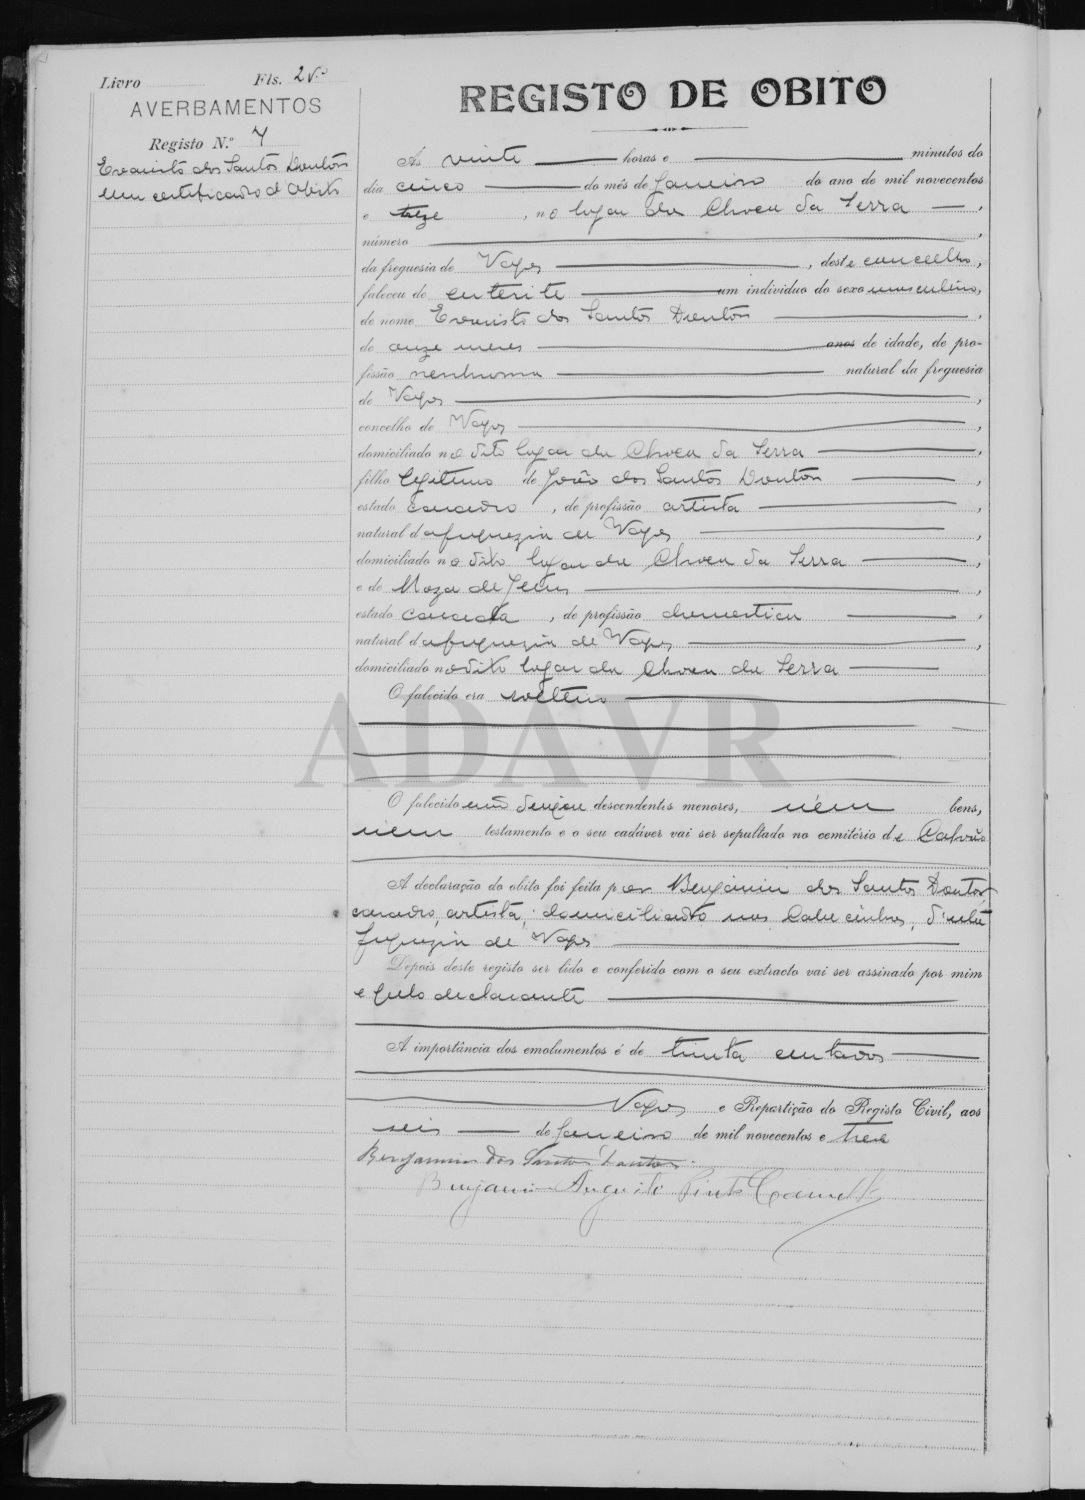 Livro Fls. 2 vº
AVERBAMENTOS
Registo N.º
Evaristo dos Santos Doutor
um certificado d' obito
REGISTO DE OBITO
Ás vinte horas e minutos do
dia cinco do mês de Janeiro do ano de mil novecentos
e treze, no lugar da Choca da Serra,
número
da freguesia de Vagos, deste concelho,
faleceu de enterite um individuo do sexo masculino,
de nome Evaristo dos Santos Doutor,
de onze meses anos de idade, de pro-
fissão nenhuma natural da freguesia
de Vagos,
concelho de Vagos,
domiciliado no dito lugar da Choca da Serra,
filho legitimo de João dos Santos Doutor,
estado casado, de profissão artista,
natural da freguezia de Vagos,
domiciliado no dito lugar da Choca da Serra,
e de Roza de Jesus,
estado casada, de profissão domestica,
natural da freguezia de Vagos,
domiciliado no dito lugar da Choca da Serra
O falecido era solteiro
ADAVR
O falecido não deixou descendentes menores, nem bens,
nem testamento e o seu cadáver vai ser sepultado no cemitério de Calvão
A declaração do obito foi feita por Benjamin dos Santos Doutor
casado, artista, domiciliado nos, d'esta
freguezia de Vagos
Depois deste registo ser lido e conferido com o seu extracto vai ser assinado por mim
e pelo declarante
A importância dos emolumentos é de trinta centavos
Vagos e Repartição do Registo Civil, aos
seis de Janeiro de mil novecentos e treze
Benjamim dos Santos Doutor
Benjamin Augusto Pinto Camello